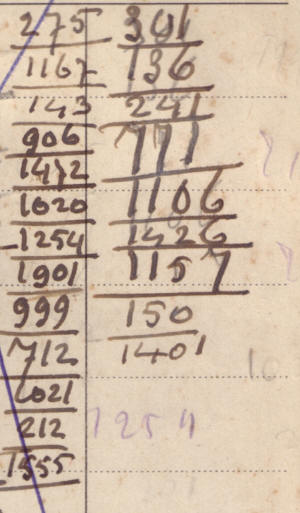 275 301
1167 136
143 241
906 771
1472 1106
1020 1426
1254 1157
1901 150
999 1401
712
1021
212 1254
1555